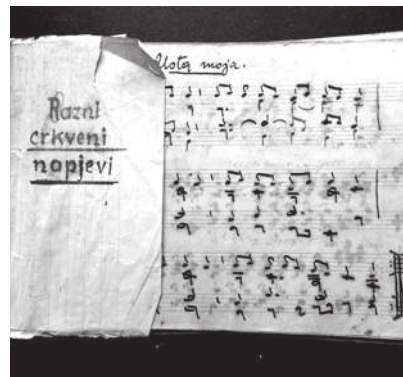 Razni
crkveni
napjevi
Usta moja.